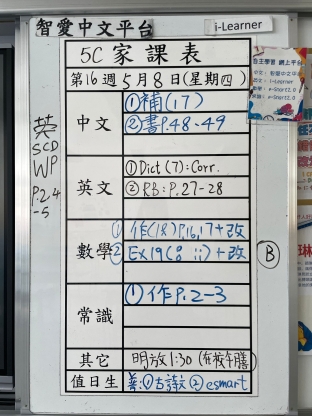 智愛中文平台
i-Learner
5C 家課表
第16週5月8日(星期四)
中文
①補(17)
②書P.48-49
英文
①Dict(7):Corr.
②RB:P.27-28
數學
① 作(18)P.16,17+改
②
常識
①作P.2-3
其它
明放1:30(在校午膳)
值日生
英
SCD
WP
P.24
-5
B
自主學習 網上平台